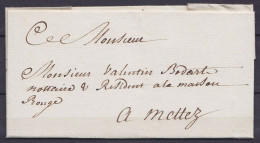 Monsieur
Monsieur Valentin Bodart
nottaire & Resident a la maison
Rouge
A Mettez